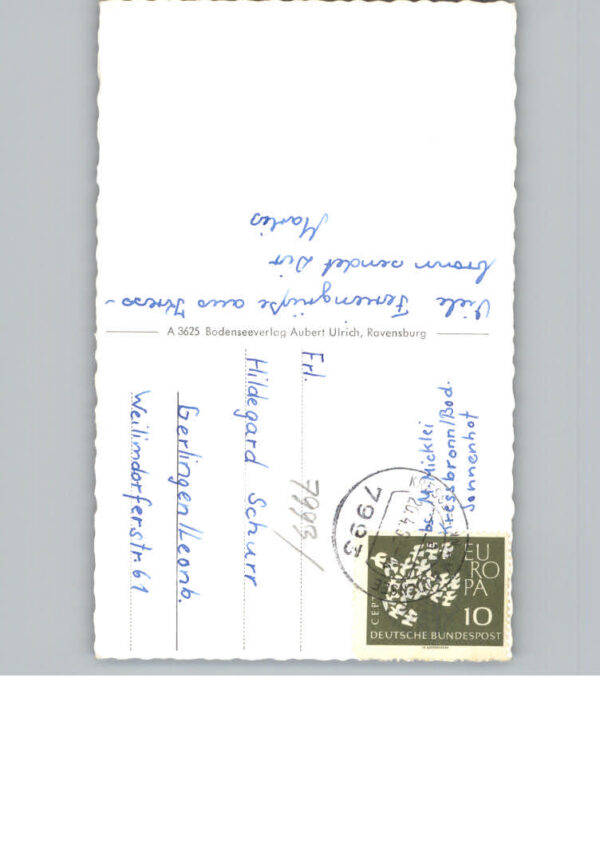 Viele Feriengrüße aus Kress-
bronn sendet Dir
Marlis
A 3625 Bodenseeverlag Aubert Ulrich, Ravensburg
Frl.
Hildegard Schurr
Gerlingen/Leonb.
Weilimdorferstr. 61
bs. M. Micklei
Kressbronn/Bod.
Sonnenhof
7993
7993
EU
RO
PA
CEPT
10
DEUTSCHE BUNDESPOST